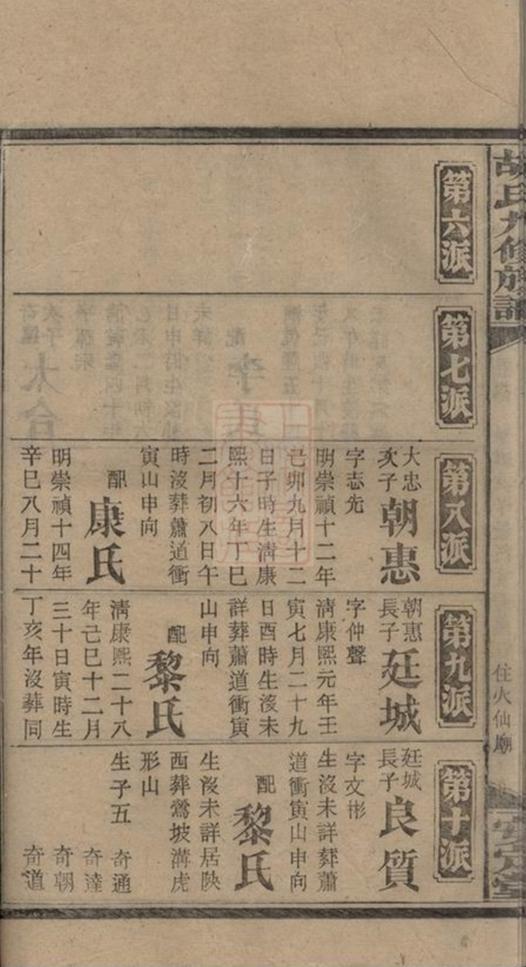 胡氏九修族譜
住火仙廟
安定堂
第六派
第七派
第八派
大忠
次子
朝惠
字志先
明崇禎十二年
己卯九月十二
日子時生淸康
熙十六年丁巳
二月初八日午
時沒葬蕭道衝
寅山申向
配
康氏
明崇禎十四年
辛巳八月二十
第九派
朝惠
長子
廷城
字仲聲
淸康熙元年壬
寅七月二十九
日酉時生沒未
詳葬蕭道衝寅
山申向
配
黎氏
淸康熙二十八
年己巳十二月
三十日寅時生
丁亥年沒葬同
第十派
廷城
長子
良質
字文彬
生沒未詳葬蕭
道衝寅山申向
配
黎氏
生沒未詳居陝
西葬鶯坡溝虎
形山
生子五
奇通
奇達
奇朝
奇道